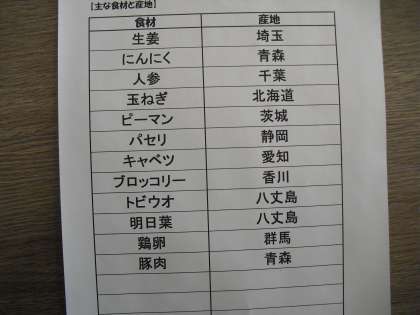 【主な食材と産地】
食材 産地
生姜 埼玉
にんにく 青森
人参 千葉
玉ねぎ 北海道
ピーマン 茨城
パセリ 静岡
キャベツ 愛知
ブロッコリー 香川
トビウオ 八丈島
明日葉 八丈島
鶏卵 群馬
豚肉 青森